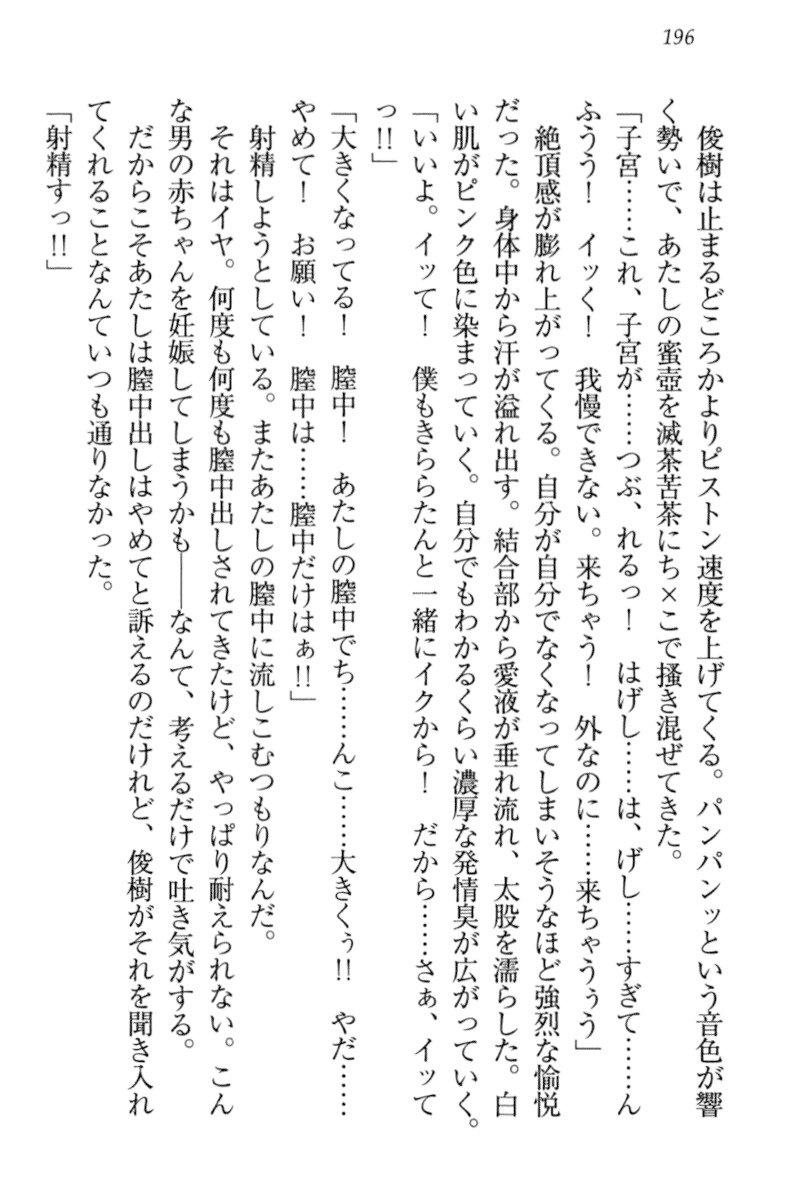 196
俊樹は止まるどころかよりピストン速度を上げてくる。パンパンッという音色が響
く勢いで、あたしの蜜壺を滅茶苦茶にち×こで掻き混ぜてきた。
「子宮……これ、子宮が……つぶ、れるっ！　はげし……は、げし……すぎて……ん
ふうう！　イッく！　我慢できない。来ちゃう！　外なのに……来ちゃうぅう」
絶頂感が膨れ上がってくる。自分が自分でなくなってしまいそうなほど強烈な愉悦
だった。身体中から汗が溢れ出す。結合部から愛液が垂れ流れ、太股を濡らした。白
い肌がピンク色に染まっていく。自分でもわかるくらい濃厚な発情臭が広がっていく。
「いいよ。イッて！　僕もきららたんと一緒にイクから！　だから……さぁ、イッて
っ!!」
「大きくなってる！　膣中！　あたしの膣中でち……んこ……大きくぅ!!　やだ……
やめて！　お願い！　膣中は……膣中だけはぁ!!」
射精しようとしている。またあたしの膣中に流しこむつもりなんだ。
それはイヤ。何度も何度も膣中出しされてきたけど、やっぱり耐えられない。こん
な男の赤ちゃんを妊娠してしまうかも――なんて、考えるだけで吐き気がする。
だからこそあたしは膣中出しはやめてと訴えるのだけれど、俊樹がそれを聞き入れ
てくれることなんていつも通りなかった。
「射精すっ!!」